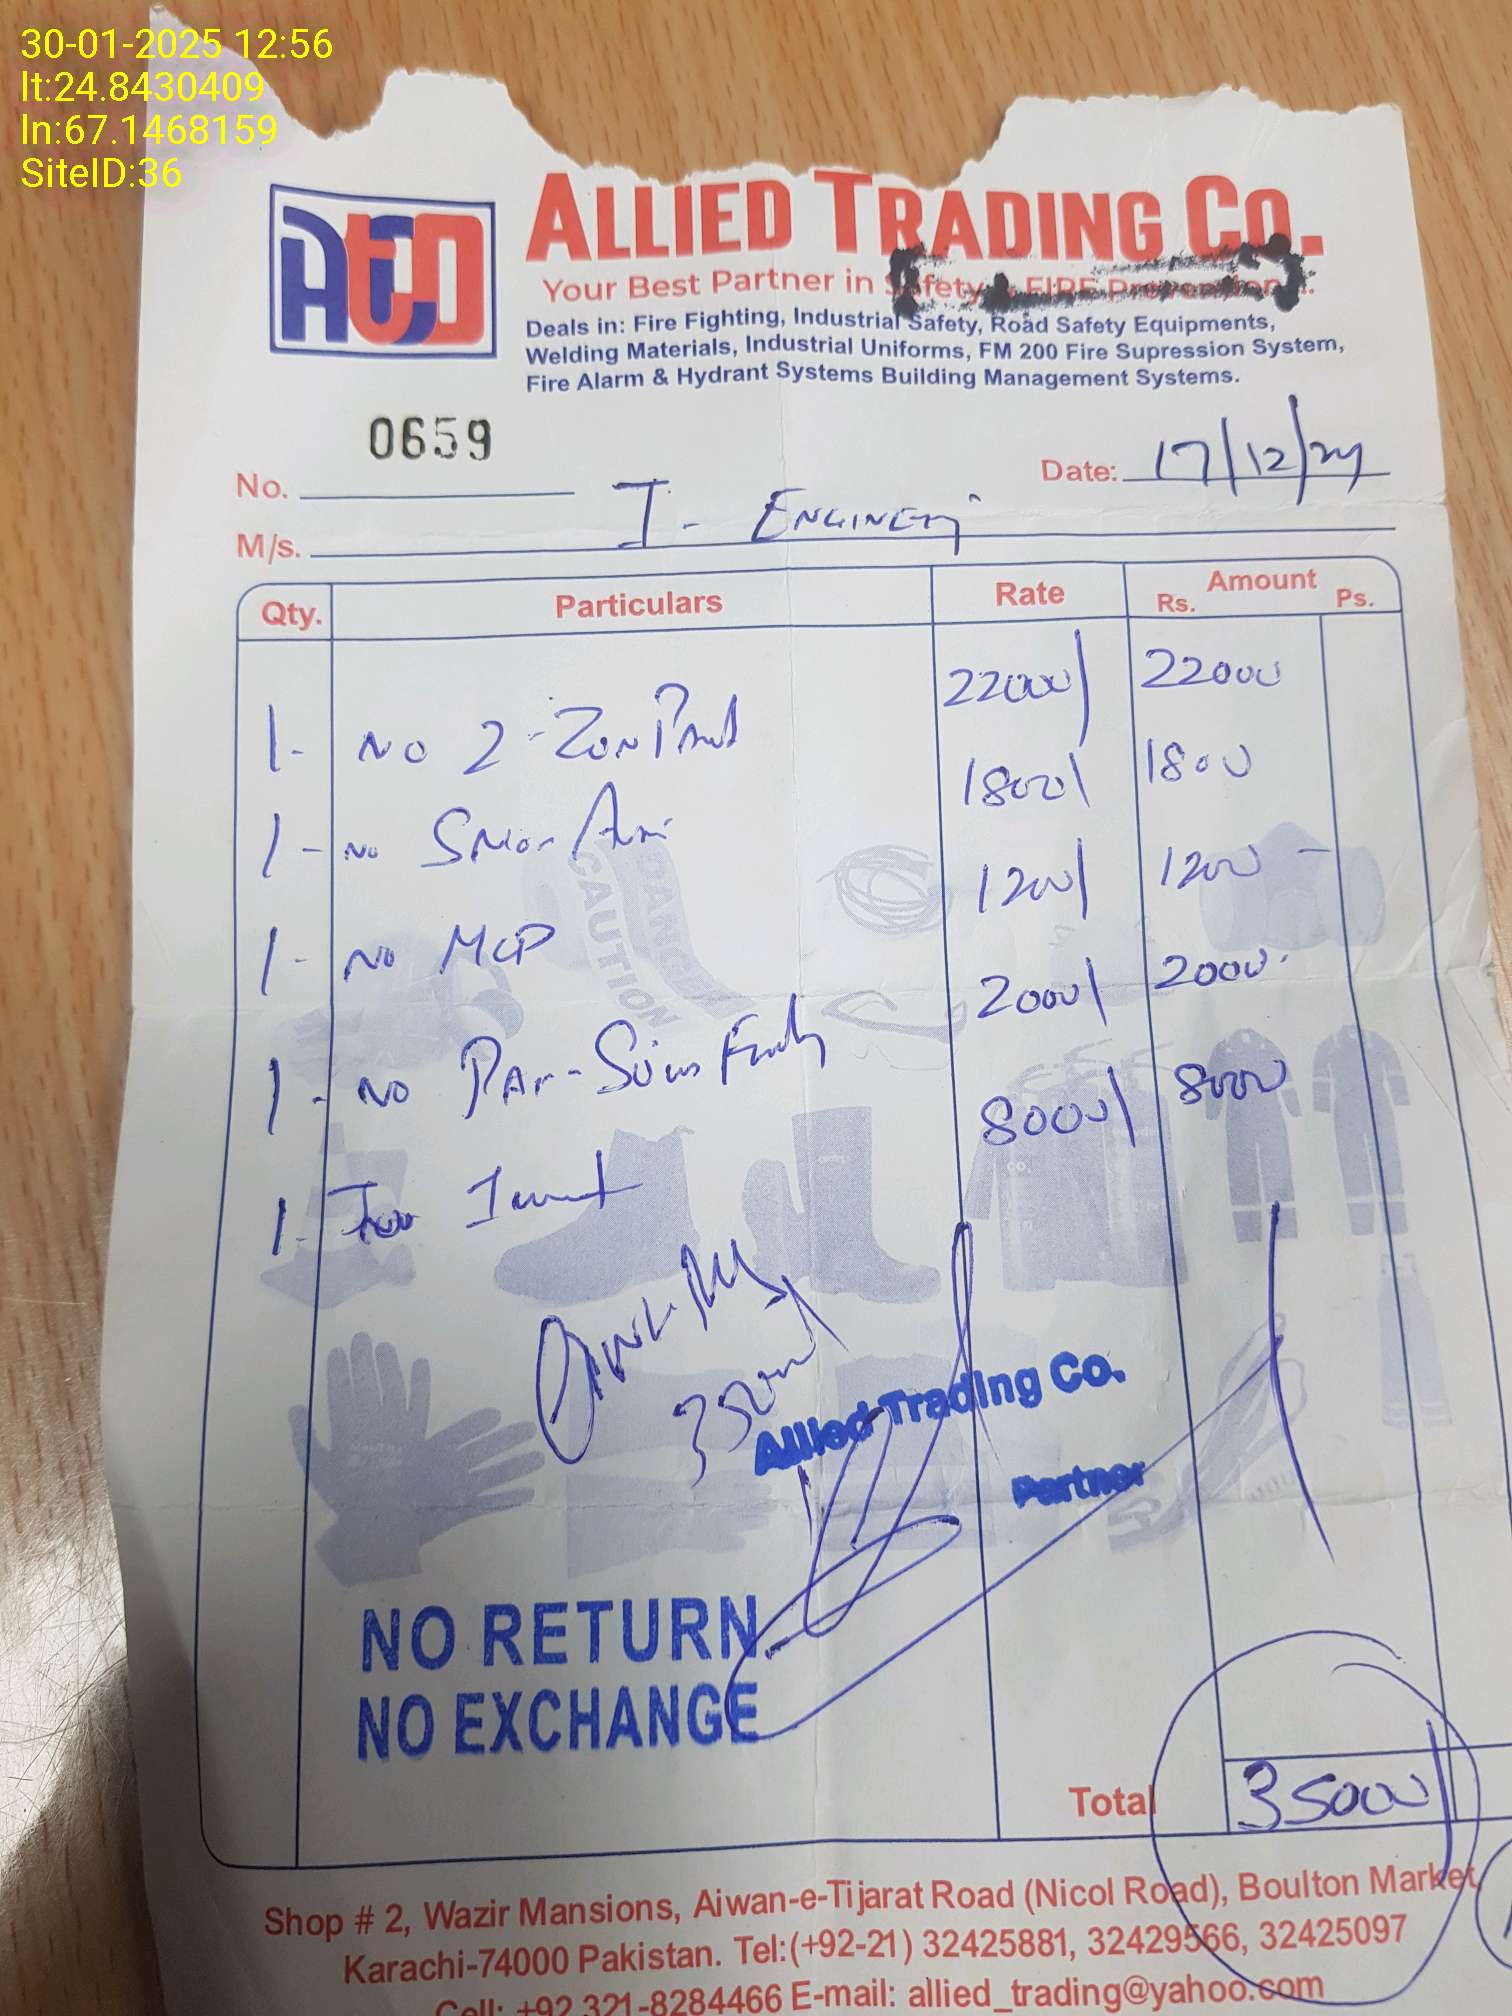 30-01-2025 12:56
lt:24.8430409
ln:67.1468159
SiteID:36
ATCO
ALLIED TRADING CO.
Your Best Partner in Safety & FIRE Prevention
Deals in: Fire Fighting, Industrial Safety, Road Safety Equipments,
Welding Materials, Industrial Uniforms, FM 200 Fire Supression System,
Fire Alarm & Hydrant Systems Building Management Systems.
0659
No. Date: 17/12/24
M/s. I-
Qty. Particulars Rate Amount
Rs. Ps.
1- No 2-Zon 22000/ 22000
1- No 1800/ 1800
1- No MCP 1200/ 1200 -
1- No 2000/ 2000
1- 8000/ 8000
35000/
Allied Trading Co.
Partner
NO RETURN
NO EXCHANGE
Total 35000/
Shop # 2, Wazir Mansions, Aiwan-e-Tijarat Road (Nicol Road), Boulton Market,
Karachi-74000 Pakistan. Tel:(+92-21) 32425881, 32429566, 32425097
Cell: +92 321-8284466 E-mail: allied_trading@yahoo.com